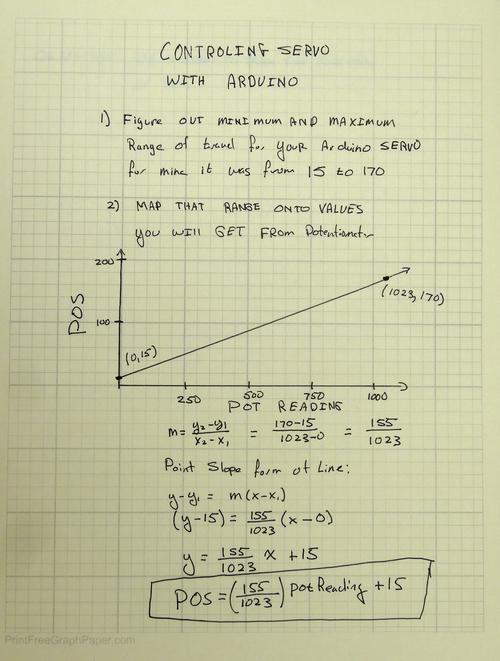 CONTROLING SERVO
WITH ARDUINO
1) Figure OUT MINIMUM AND MAXIMUM
Range of travel for your Arduino SERVO
for mine it was from 15 to 170
2) MAP THAT RANGE ONTO VALUES
you WILL GET FROM Potentiometer
200
100
POS
(0,15)
(1023, 170)
250 500 750 1000
POT READING
m = y₂-y₁ / x₂-x₁ = 170-15 / 1023-0 = 155 / 1023
Point Slope form of Line:
y-y₁ = m(x-x₁)
(y-15) = 155/1023 (x-0)
y = 155/1023 x +15
POS = (155/1023) potReading +15
PrintFreeGraphPaper.com